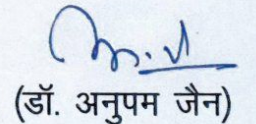 (डॉ. अनुपम जैन)